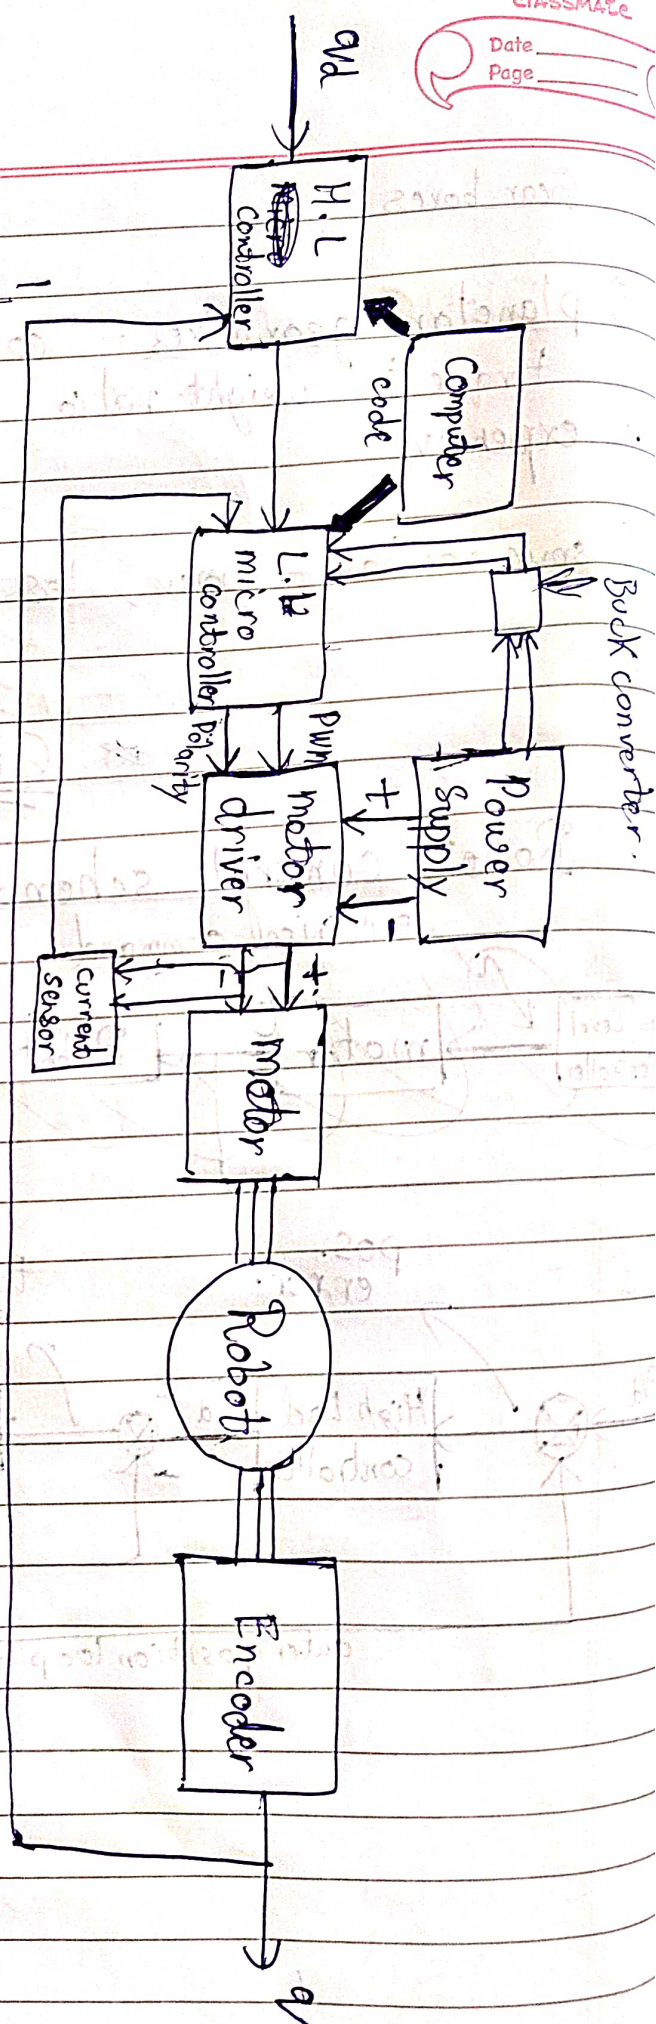 classmate
Date
Page
qd
H.L
controller
Computer
code
Buck converter.
L.L
micro
controller
PWM
Polarity
Power
Supply
+
-
motor
driver
+
-
current
sensor
motor
Robot
Encoder
q